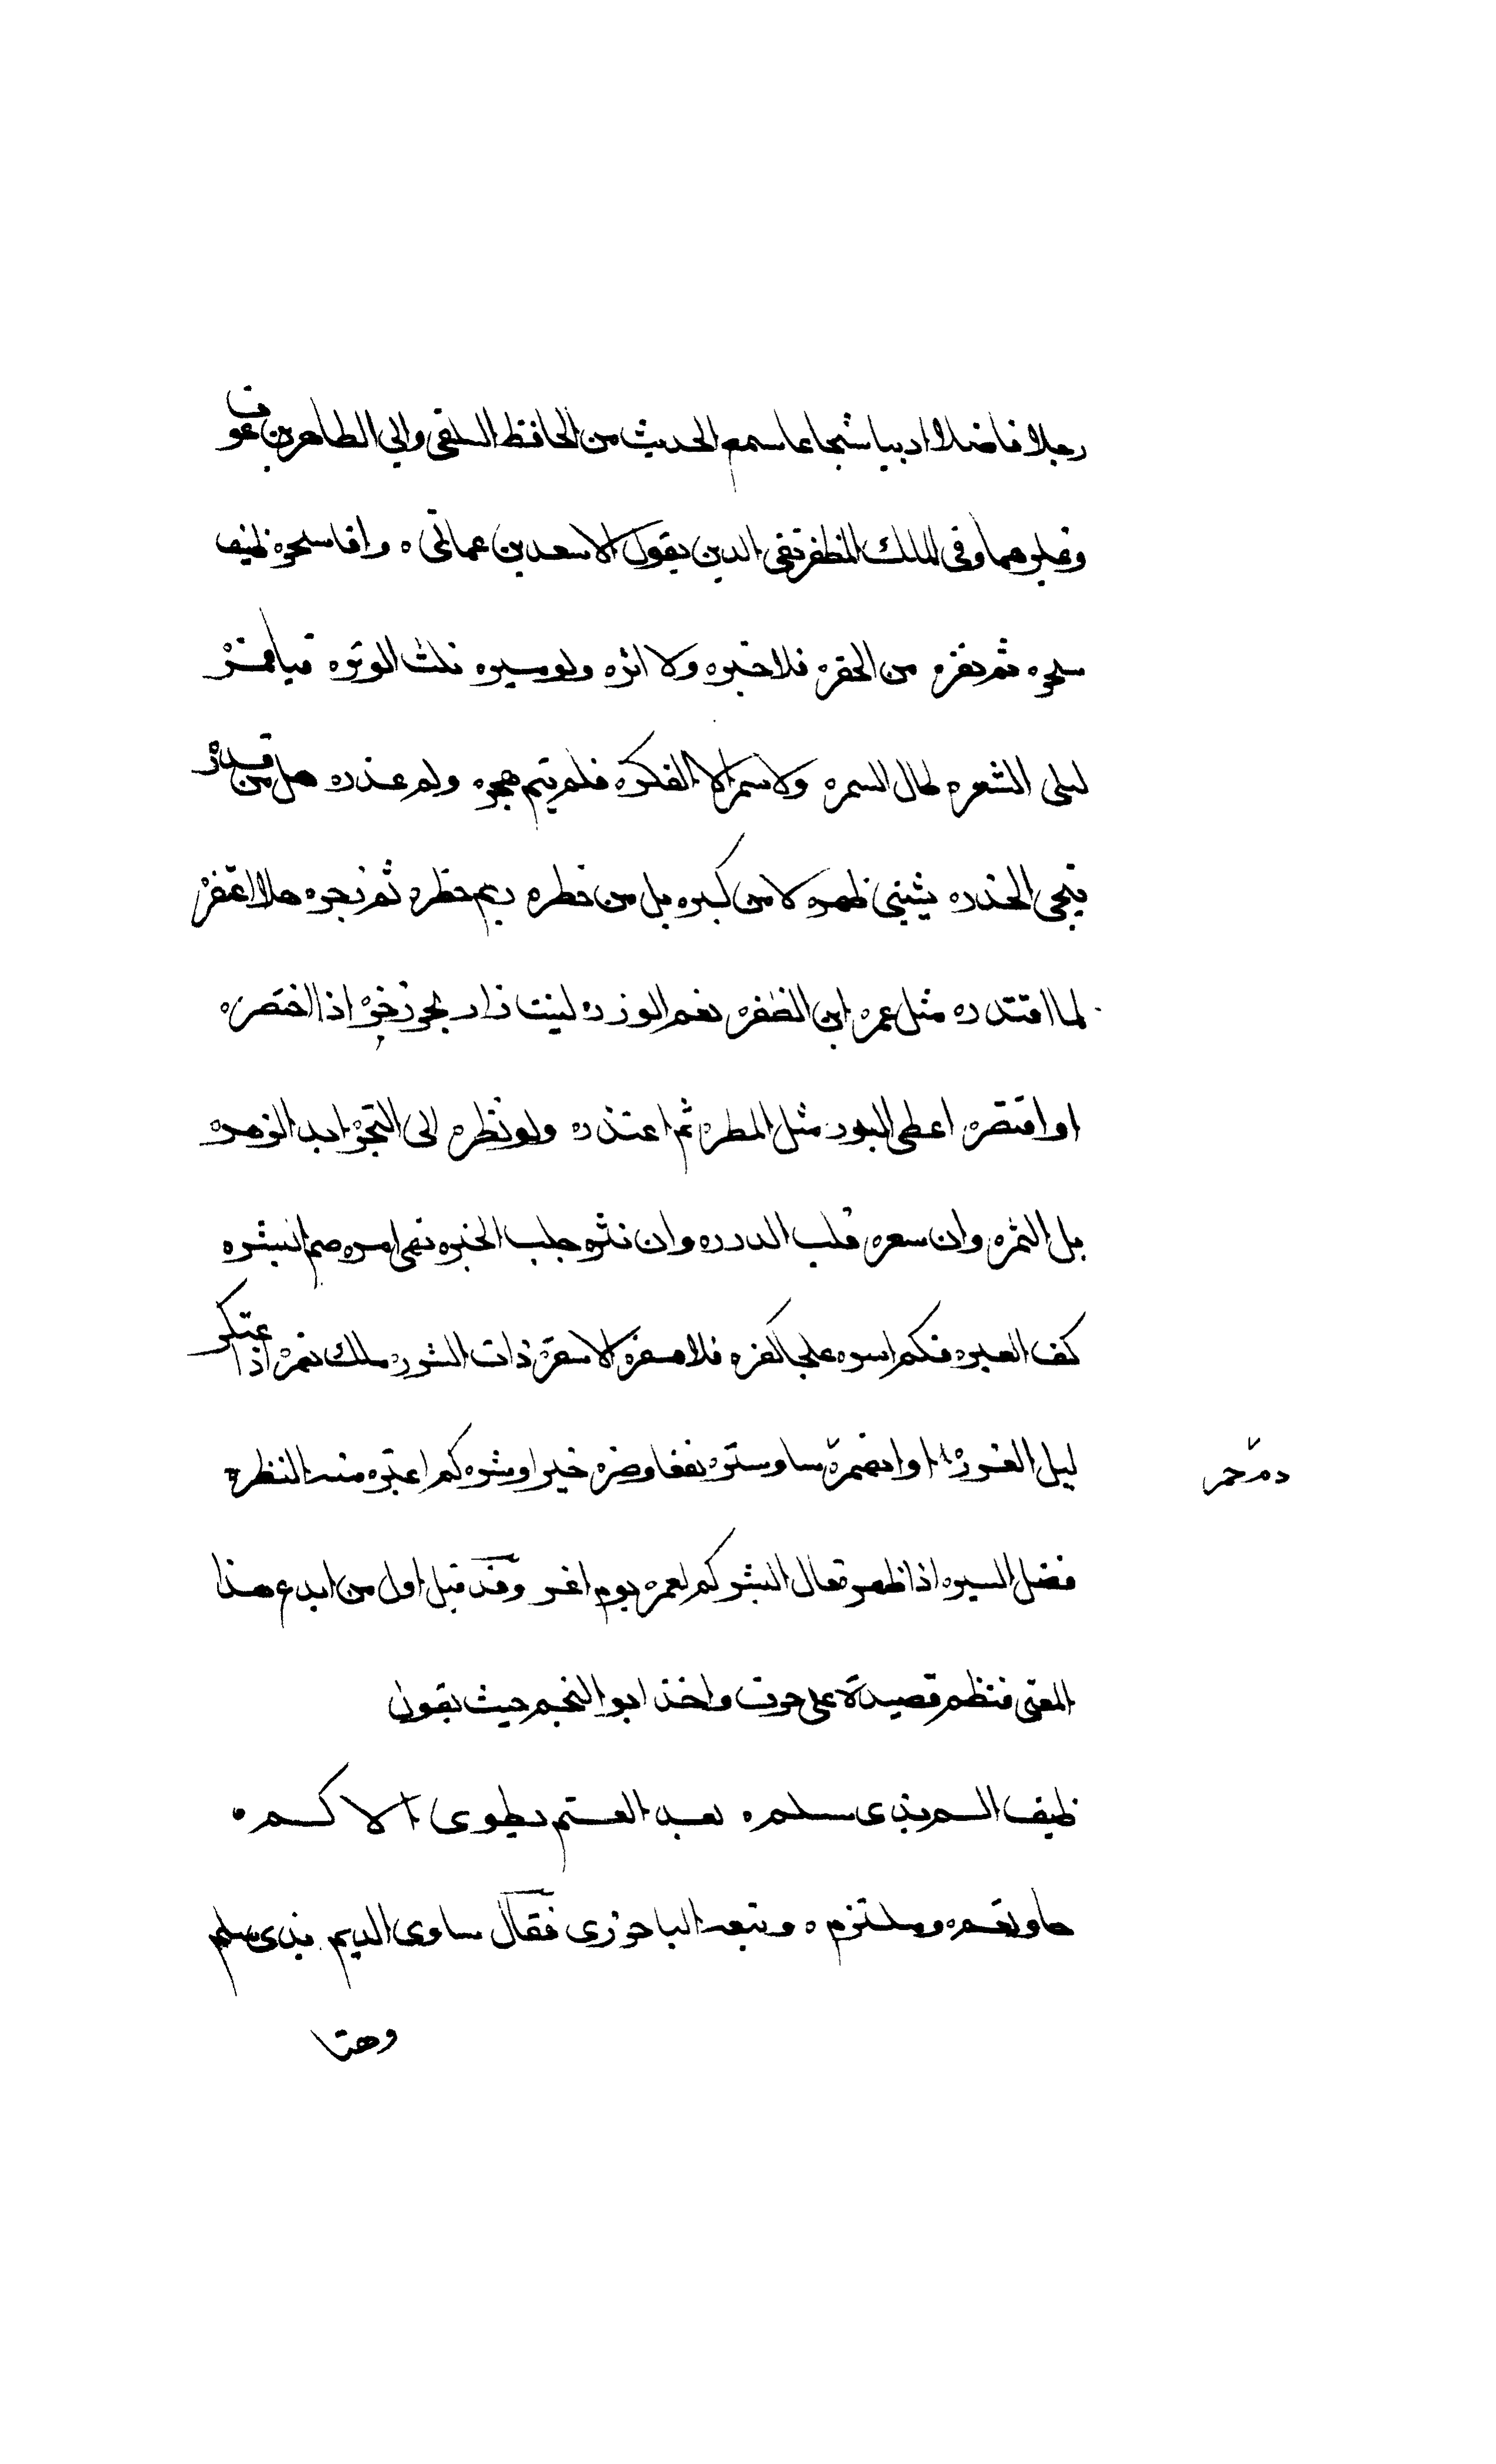 رجلا فاضلا اديبا شجاعا سمع الحديث من الحافظ السلفى وابى الطاهر بن عوف
وغيرهما وفى الملك المظفر تقى الدين يقول الاسعد بن مماتى ه وافا سحره طيف
سحره ثم نفره من الحفره فلا خبره ولا اثره ولو سيره ثلث الوتره فيا قمره
ليلى الشعره طال السمره ولا سمر الا الفكره فلم يتم هجره ولم عذره هل من قدره
ينجى الحذره يثنى ظهره لا من كبره بل من خطره ثم زجره هلا اغتفره
لما اقتدره مثل عمره ابن الظفره نعم الوزره ليث زار بحر زخره اذا اختصره
او اقتصره اعطى البدر مثل المطره ثم اعتذره ولو نظره الى الزهره
بل الثمره وان سعره قلب الدرره وان نثره جلب الخبره نهى امره البشره
كف العبره فكم اسره على الكفره فلا مفره الا سقره ذات الشرره ملك نمره اذا اعتكر
ليل الغرره او انهمره ساوستره نفعا وضره خيرا وشره كم اعتبره منه النظره
دم حمر
فضل السيره اذا ظهر تعال البشر كم لعمره يوم اغر وقد قيل اول من ابدع هذا
المعنى فنظم قصيدة على حرف واحد ابو النجم حيث يقول
طيف الم بذى سلم ه بعد العتم يطوى الاكم ه
جاد بفم وملتزم ه وتبعه الباخرزى فقال ساوى الديم بذى سلم
وهنا